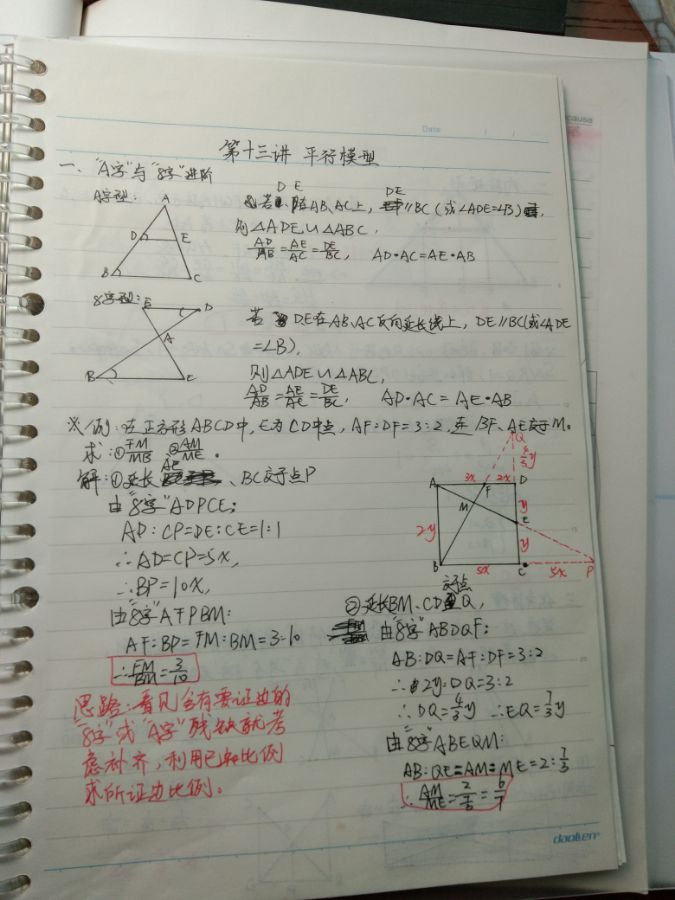 Date
第十三讲 平行模型
一、"A字"与"8字"进阶
A字型:
A
D
E
B
C
若 D E 在AB、AC上, DE∥BC(或∠ADE=∠B),
则△ADE∽△ABC,
AD/AB=AE/AC=DE/BC, AD·AC=AE·AB
8字型:
E
D
A
B
C
若 DE在AB、AC反向延长线上, DE∥BC(或∠ADE
=∠B),
则△ADE∽△ABC,
AD/AB=AE/AC=DE/BC, AD·AC=AE·AB
※例:在正方形ABCD中,E为CD中点,AF:DF=3:2,连BF、AE交于M。
求:①FM/MB ②AM/ME。
解:①延长AE、BC交于点P
由"8字"ADPCE:
AD:CP=DE:CE=1:1
∴AD=CP=5x,
∴BP=10x,
由"8字"AFPBM:
AF:BP=FM:BM=3:10
∴FM/BM=3/10
思路:看见含有要证边的
"8字"或"A字"残缺就考
虑补齐,利用已知比例
求所证边比例。
Q
4/3y
3x
2x
A
F
D
M
y
2y
E
y
B
5x
C
5x
P
②延长BM、CD交点Q,
由"8字"ABDQF:
AB:DQ=AF:DF=3:2
∴2y:DQ=3:2
∴DQ=4/3y ∴EQ=7/3y
由"8字"ABEQM:
AB:QE=AM:ME=2:7/3
∴AM/ME=2/(7/3)=6/7